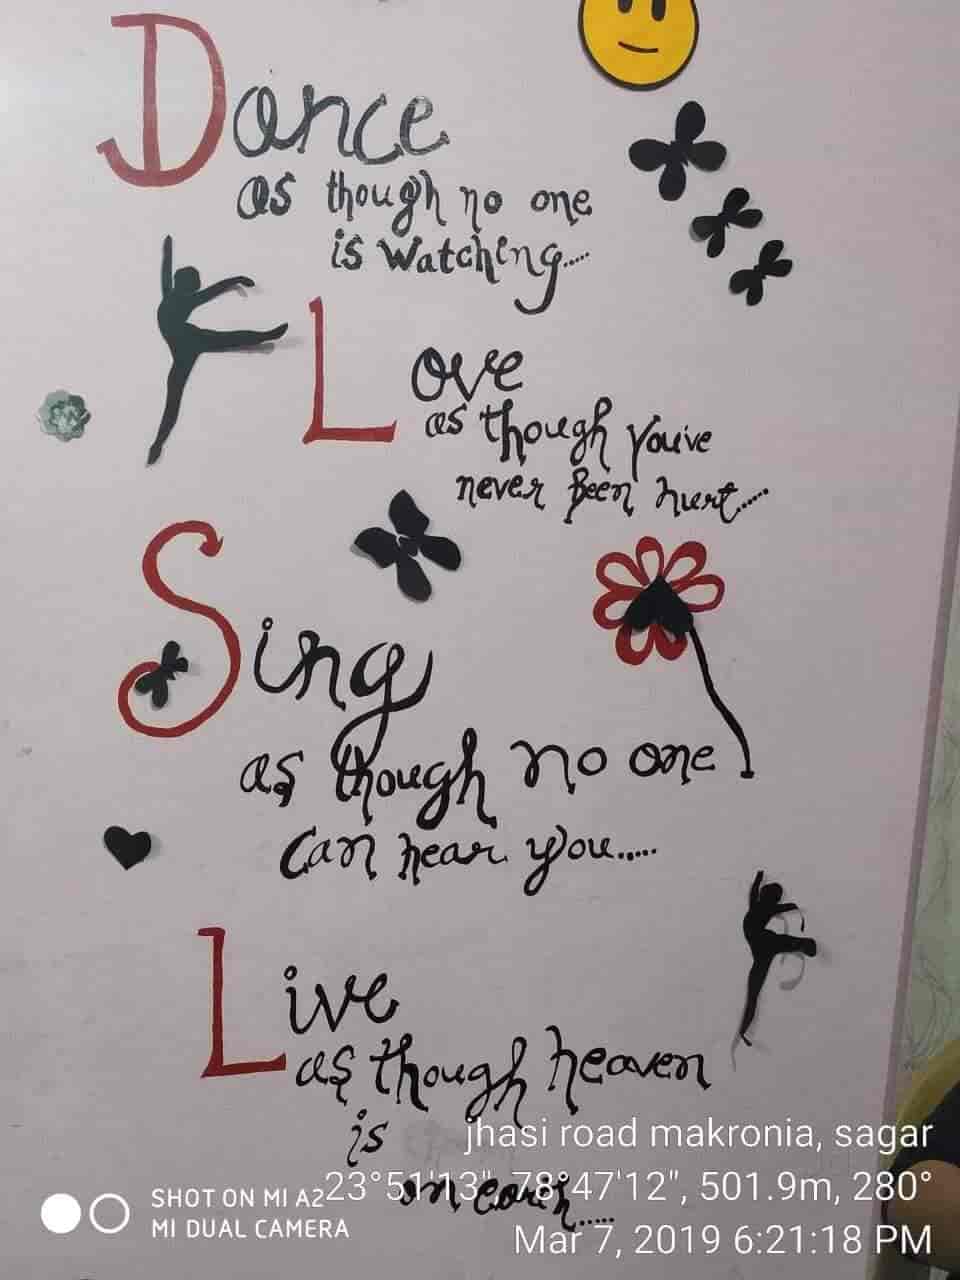 Dance
as though no one
is watching.....
Love
as though you've
never Been hurt.....
Sing
as though no one
can hear you.....
Live
as though heaven
is
on earth.....
jhasi road makronia, sagar
23°51'13", 78°47'12", 501.9m, 280°
Mar 7, 2019 6:21:18 PM
SHOT ON MI A2
MI DUAL CAMERA